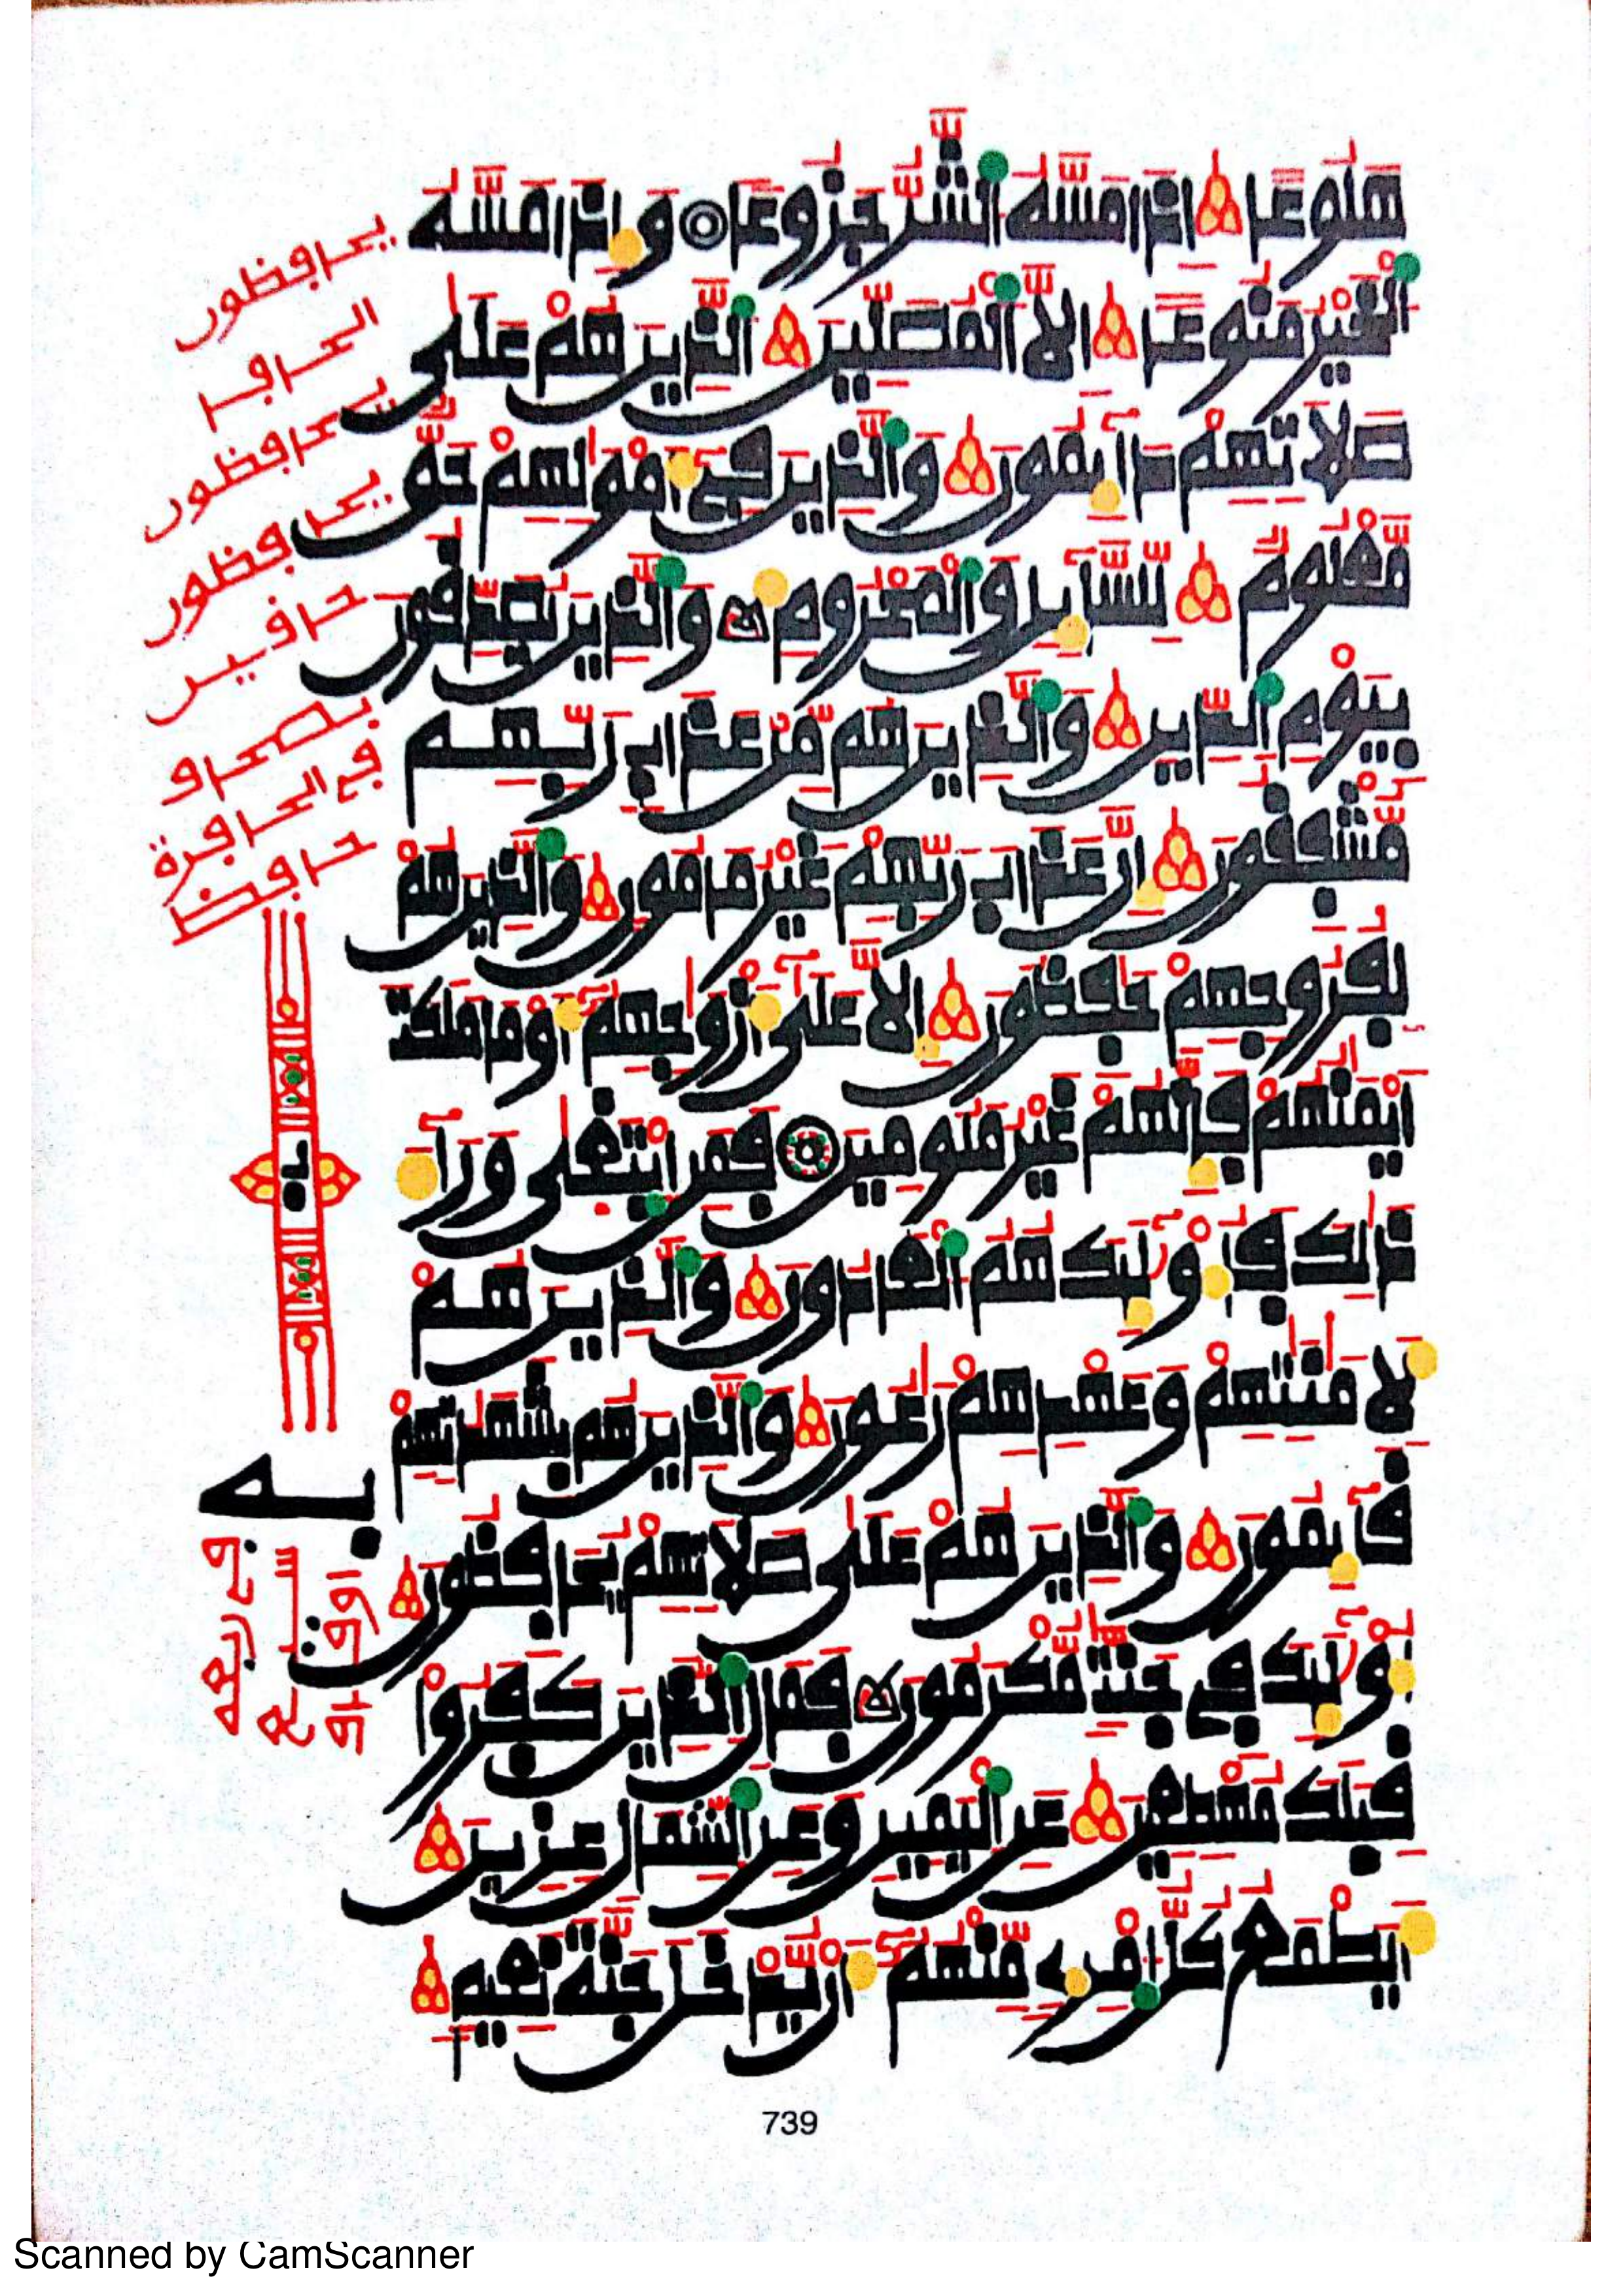 هَلُوعًا إِذَا مَسَّهُ الشَّرُّ جَزُوعًا وَإِذَا مَسَّهُ
الْخَيْرُ مَنُوعًا إِلَّا الْمُصَلِّينَ الَّذِينَ هُمْ عَلَى
صَلَاتِهِمْ دَآيِمُونَ وَالَّذِينَ فِي أَمْوَلِهِمْ حَقٌّ
مَّعْلُومٌ لِّلسَّآيِلِ وَالْمَحْرُومِ وَالَّذِينَ يُصَدِّقُونَ
بِيَوْمِ الدِّينِ وَالَّذِينَ هُم مِّنْ عَذَابِ رَبِّهِم
مُّشْفِقُونَ إِنَّ عَذَابَ رَبِّهِمْ غَيْرُ مَامُونٍ وَالَّذِينَ هُمْ
لِفُرُوجِهِمْ حَفِظُونَ إِلَّا عَلَى أَزْوَجِهِمْ أَوْ مَا مَلَكَتْ
أَيْمَنُهُمْ فَإِنَّهُمْ غَيْرُ مَلُومِينَ فَمَنِ ابْتَغَى وَرَآءَ
ذَلِكَ فَأُوْلَيِكَ هُمُ الْعَادُونَ وَالَّذِينَ هُمْ
لِأَمَنَتِهِمْ وَعَهْدِهِمْ رَعُونَ وَالَّذِينَ هُم بِشَهَدَتِهِمْ
قَآيِمُونَ وَالَّذِينَ هُمْ عَلَى صَلَاتِهِمْ يُحَافِظُونَ
أُوْلَيِكَ فِي جَنَّتٍ مُّكْرَمُونَ فَمَالِ الَّذِينَ كَفَرُواْ
قِبَلَكَ مُهْطِعِينَ عَنِ الْيَمِينِ وَعَنِ الشِّمَالِ عِزِينَ
أَيَطْمَعُ كُلُّ امْرِئٍ مِّنْهُمْ أَن يُّدْخَلَ جَنَّةَ نَعِيمٍ
يحافظون
يحافظون
يحافظون
حافين
في الحافرة
حافظ
به
739
Scanned by CamScanner